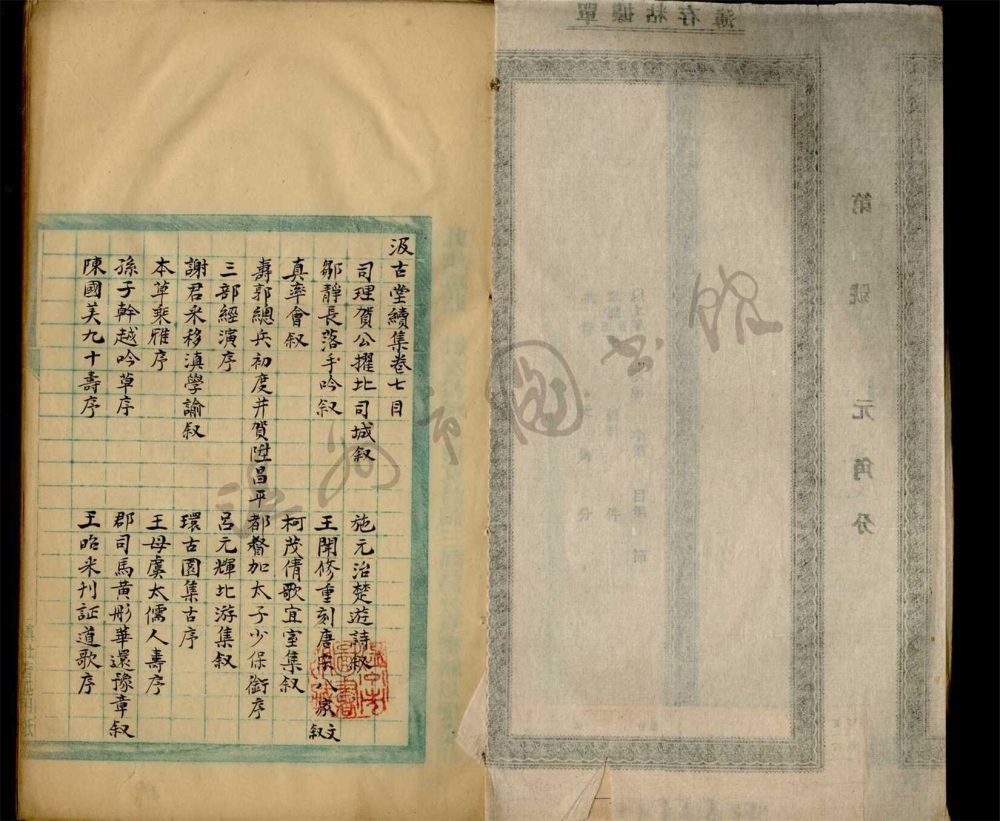 汲古堂續集卷七目
司理賀公擢北司城叙 施元治楚遊詩叙
鄒靜長落手吟叙 王開修重刻唐宋八家文叙
真率會叙 柯茂倩歌宜室集叙
壽郭總兵初度并賀陞昌平都督加太子少保銜序
三部經演序 呂元輝北游集叙
謝君采移滇學諭叙 環古園集古序
本草乘雅序 王母虞太孺人壽序
孫子幹越吟草序 郡司馬黃彤華還豫章叙
陳國美九十壽序 王昭米刊証道歌序
簿存粘據單
第 號
元角分